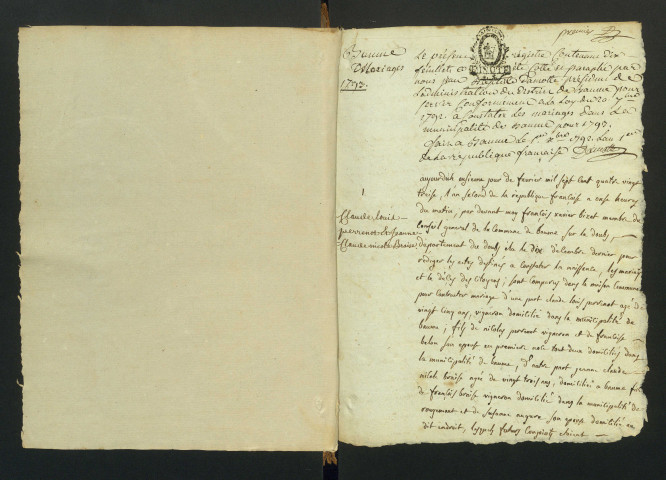 premier
Baume
Mariages
1793.
Le présent registre Contenant dix
feuillets a été Cotté et paraphé par
nous président de
L'administration du District de Baume pour
servir Conformement a la Loy du 20 7bre
1792. a Constater les mariages dans La
municipalité de Baume pour 1793.
fait a Baume Le 1er Xbre 1792. L'an 1er
de La republique française
1
Claude Louis
perrenot & Jeanne
Claude nicole Boisse
aujourdhuy onsieme jour de fevrier mil sept cent quatre vingt
treise, l'an second de la république francoise a onse heures
du matin, par devant moy françois xavier bizot membre du
Conseil general de la Commune de baume sur le doubs,
departement du doubs elu le dix decembre dernier pour
rediger les actes destinés a constater la naissance, les mariages
et le décès des citoyens; sont comparus dans la maison commune
pour contracter mariage d'une part claude louis perrenot agé de
vingt cinq ans, vigneron domicilié dans la municipalité de
baume, fils de nicolas perrenot vigneron et de francoise
son epouse en premiere note tout deux domiciliés dans
la municipalité de baume, d'autre part jeanne claude
nicole boisse agée de vingt trois ans, domiciliée a baume fille
de françois boisse vigneron domicilié dans la municipalité de
rougemont et de susanne son epouse domiciliée au
dit endroit, lesquels futurs Conjoints etoient